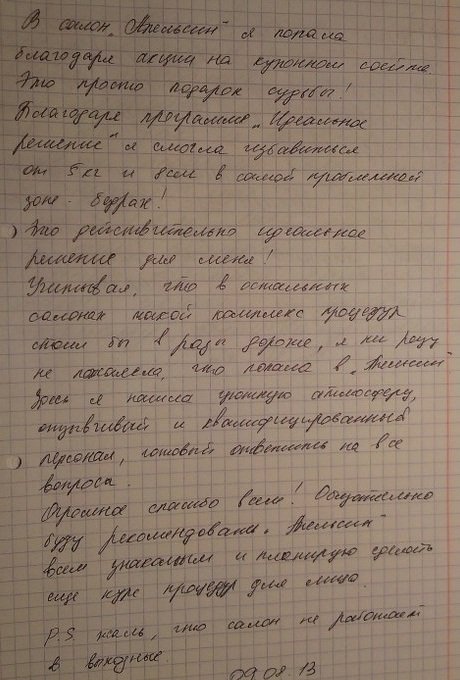 В салон „Апельсин“ я попала
благодаря акции на купонном сайте.
Это просто подарок судьбы!
Благодаря программе „Идеальное
решение“ я смогла избавиться
от 5 кг и 8см в самой проблемной
зоне - бедрах!
Это действительно идеальное
решение для меня!
Учитывая, что в остальных
салонах такой комплекс процедур
стоил бы в разы дороже, я ни разу
не пожалела, что попала в „Апельсин“
Здесь я нашла уютную атмосферу,
отзывчивый и квалифицированный
персонал, готовый ответить на все
вопросы.
Огромное спасибо всем! Обязательно
буду рекомендовать „Апельсин“
всем знакомым и планирую сделать
еще курс процедур для лица.
P.S. жаль, что салон не работает
в выходные.
09.08.13